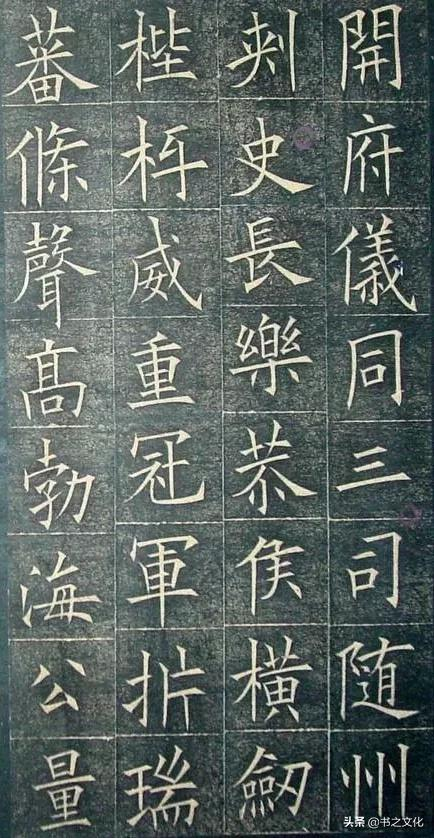 開府儀同三司随州
刾史長樂恭侯橫劒
梐枑威重冠軍析瑞
蕃條聲髙勃海公量
头条 @书之文化